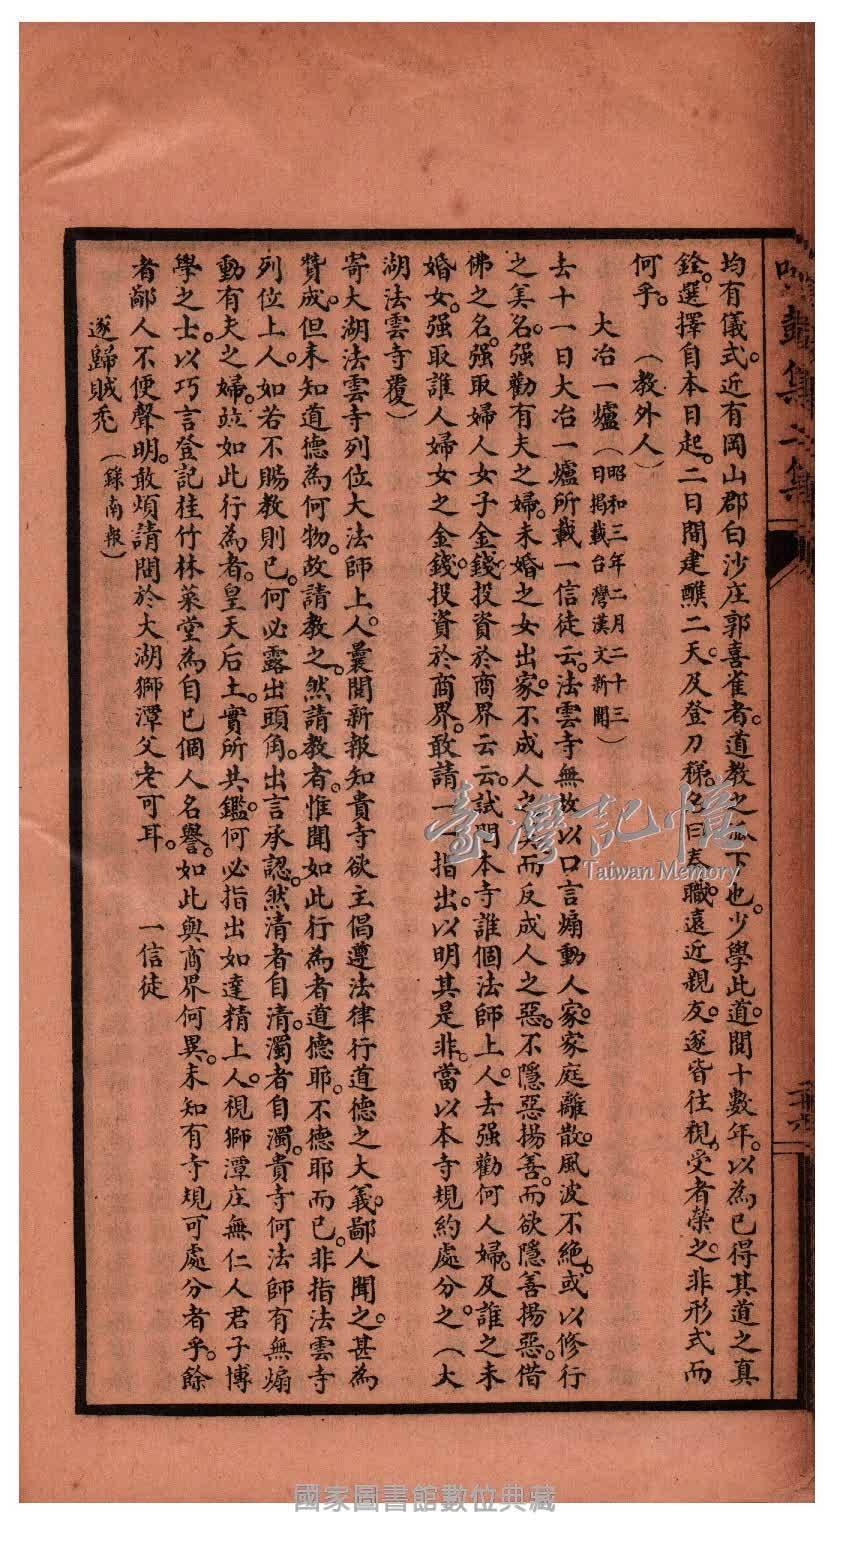 鼓集二集
均有儀式。近有岡山郡白沙庄郭喜雀者。道教之 下也。少學此道。閱十數年。以為已得其道之真
銓。選擇自本日起。二日間建醮二天。及登刀梯。名曰奏職。遠近親友。遂皆往視。受者榮之。非形式而
何乎。（教外人）
大冶一爐（昭和三年二月二十三日揭載台灣漢文新聞）
去十一日大冶一爐所載一信徒云。法雲寺無故以口言煽動人家。家庭離散。風波不絕。或以修行
之美名。强勸有夫之婦。未婚之女出家。不成人之美。而反成人之惡。不隱惡揚善。而欲隱善揚惡。借
佛之名。强取婦人女子金錢。投資於商界云云。試問本寺誰個法師上人。去强勸何人婦。及誰之未
婚女。强取誰人婦女之金錢。投資於商界。敢請一一指出。以明其是非。當以本寺規約處分之。（大
湖法雲寺覆）
寄大湖法雲寺列位大法師上人。曩閱新報知貴寺欲主倡遵法律行道德之大義。鄙人聞之。甚為
贊成。但未知道德為何物。故請教之。然請教者。惟聞如此行為者道德耶。不德耶而已。非指法雲寺
列位上人。如若不賜教則已。何必露出頭角。出言承認。然清者自清。濁者自濁。貴寺何法師有無煽
動有夫之婦。竝如此行為者。皇天后土。實所共鑑。何必指出如達精上人。視獅潭庄無仁人君子博
學之士。以巧言登記桂竹林菜堂為自己個人名譽。如此與商界何異。未知有寺規可處分者乎。餘
者鄙人不便聲明。敢煩請問於大湖獅潭父老可耳。　一信徒
遂歸賊禿（錄南報）
臺灣記憶
Taiwan Memory
國家圖書館數位典藏